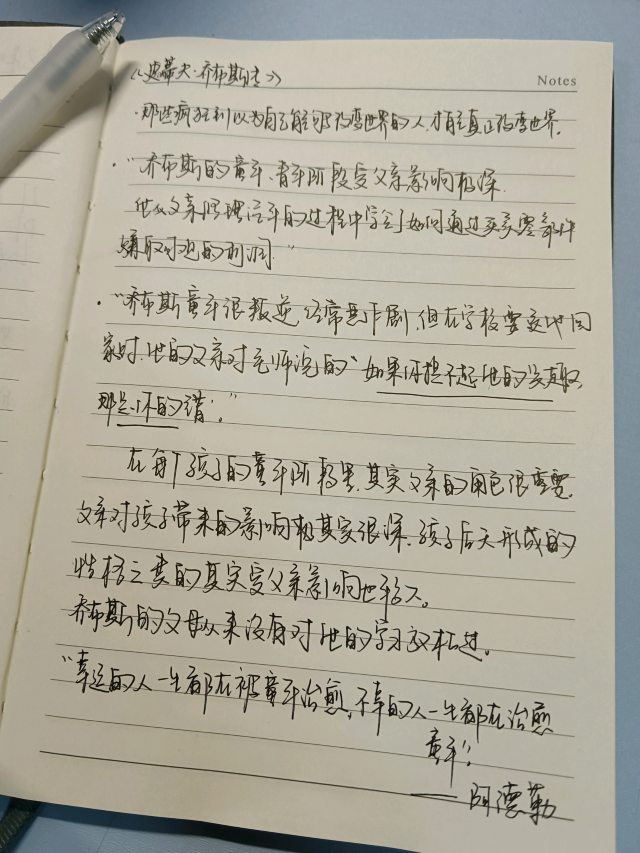 《史蒂夫·乔布斯传》
Notes
·那些疯狂到以为自己能够改变世界的人,才能真正改变世界。
·"乔布斯的童年、青年阶段受父亲影响极深.
他从父亲修理汽车的过程中学会了如何通过买卖零部件
赚取可观的利润."
·"乔布斯童年很叛逆,经常恶作剧,但在学校要交地回
家时,他的父亲对老师说的"如果你提不起他的兴趣,
那是你的错."
在每个孩子的童年阶段里,其实父亲的角色很重要,
父亲对孩子带来的影响极其深.孩子后天形成的
性格主要的其实受父亲影响也
乔布斯的父母从来没有对他的学习放松过。
"幸运的人一生都在被童年治愈,不幸的人一生都在治愈
童年"。
——阿德勒